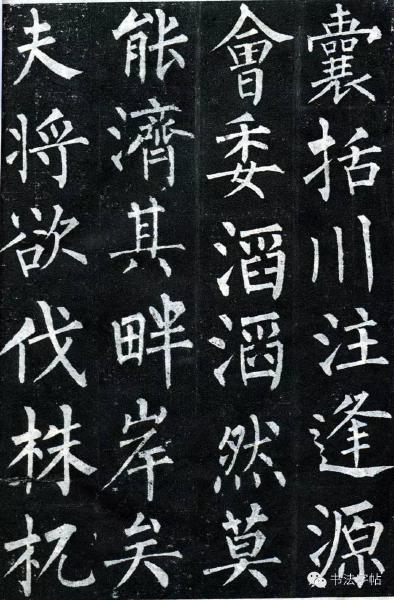 囊括川注逢源
會委滔滔然莫
能濟其畔岸矣
夫将欲伐株杌
书法字帖